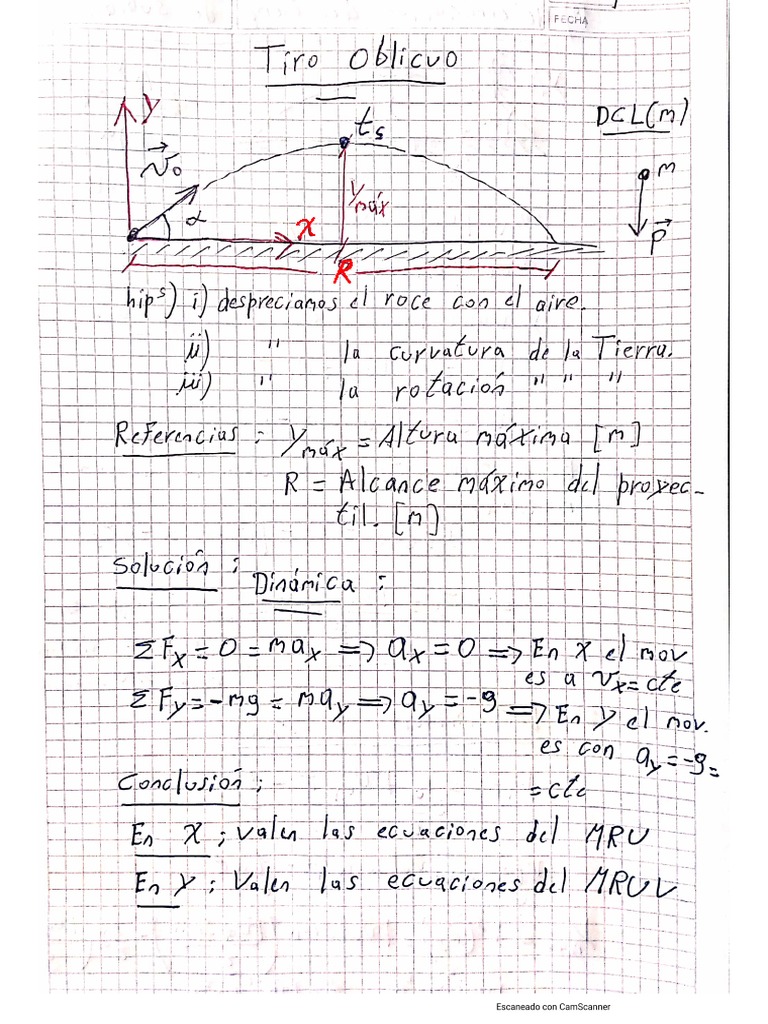 FECHA
Tiro Oblicuo
y
t_s
DCL(m)
v⃗₀
m
y_máx
α
x
P⃗
R
hip^s) i) despreciamos el roce con el aire.
ii) " la curvatura de la Tierra.
iii) " la rotación " " "
Referencias : y_máx = Altura máxima [m]
R = Alcance máximo del proyec-
til. [m]
Solución :
Dinámica :
ΣF_x = 0 = ma_x ⟹ a_x = 0 ⟹ En x el mov
es a v_x = cte
ΣF_y = -mg = ma_y ⟹ a_y = -g ⟹ En y el mov.
es con a_y = -g =
= cte
Conclusión :
En X ; valen las ecuaciones del MRU
En Y ; Valen las ecuaciones del MRUV
Escaneado con CamScanner